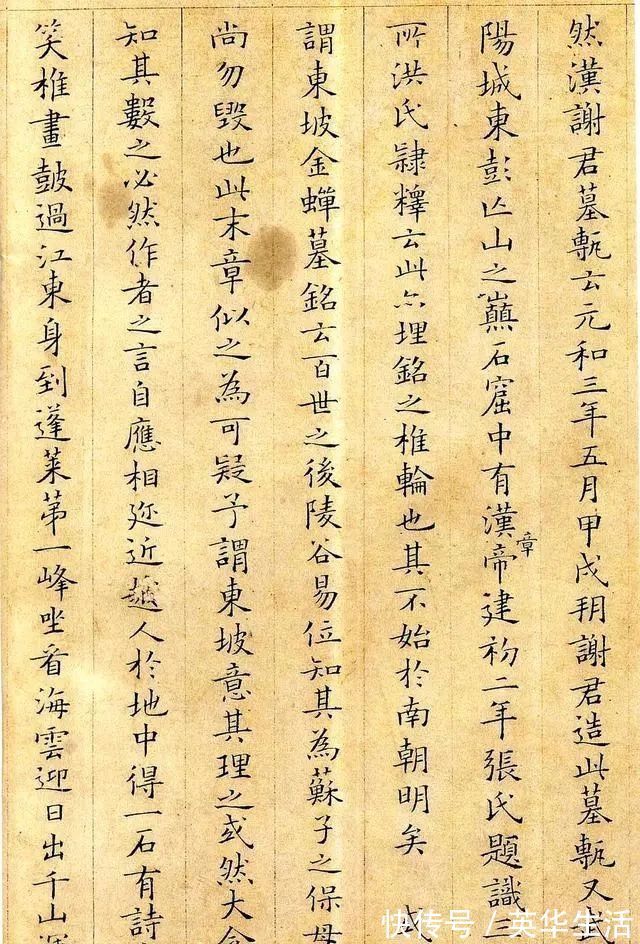 然漢謝君墓甎云元和三年五月甲戌朔謝君造此墓甎又武
陽城東彭亡山之巔石窟中有漢章帝建初二年張氏題識三
所洪氏隸釋云此亦埋銘之椎輪也其不始於南朝明矣 或
謂東坡金蟬墓銘云百世之後陵谷易位知其為蘇子之保母
尚勿毀也此末章似之為可疑予謂東坡意其理之或然大令
知其數之必然作者之言自應相迩近越人於地中得一石有詩
笑椎畫皷過江東身到蓬萊第一峰坐看海雲迎日出千山
快传号/英华生活